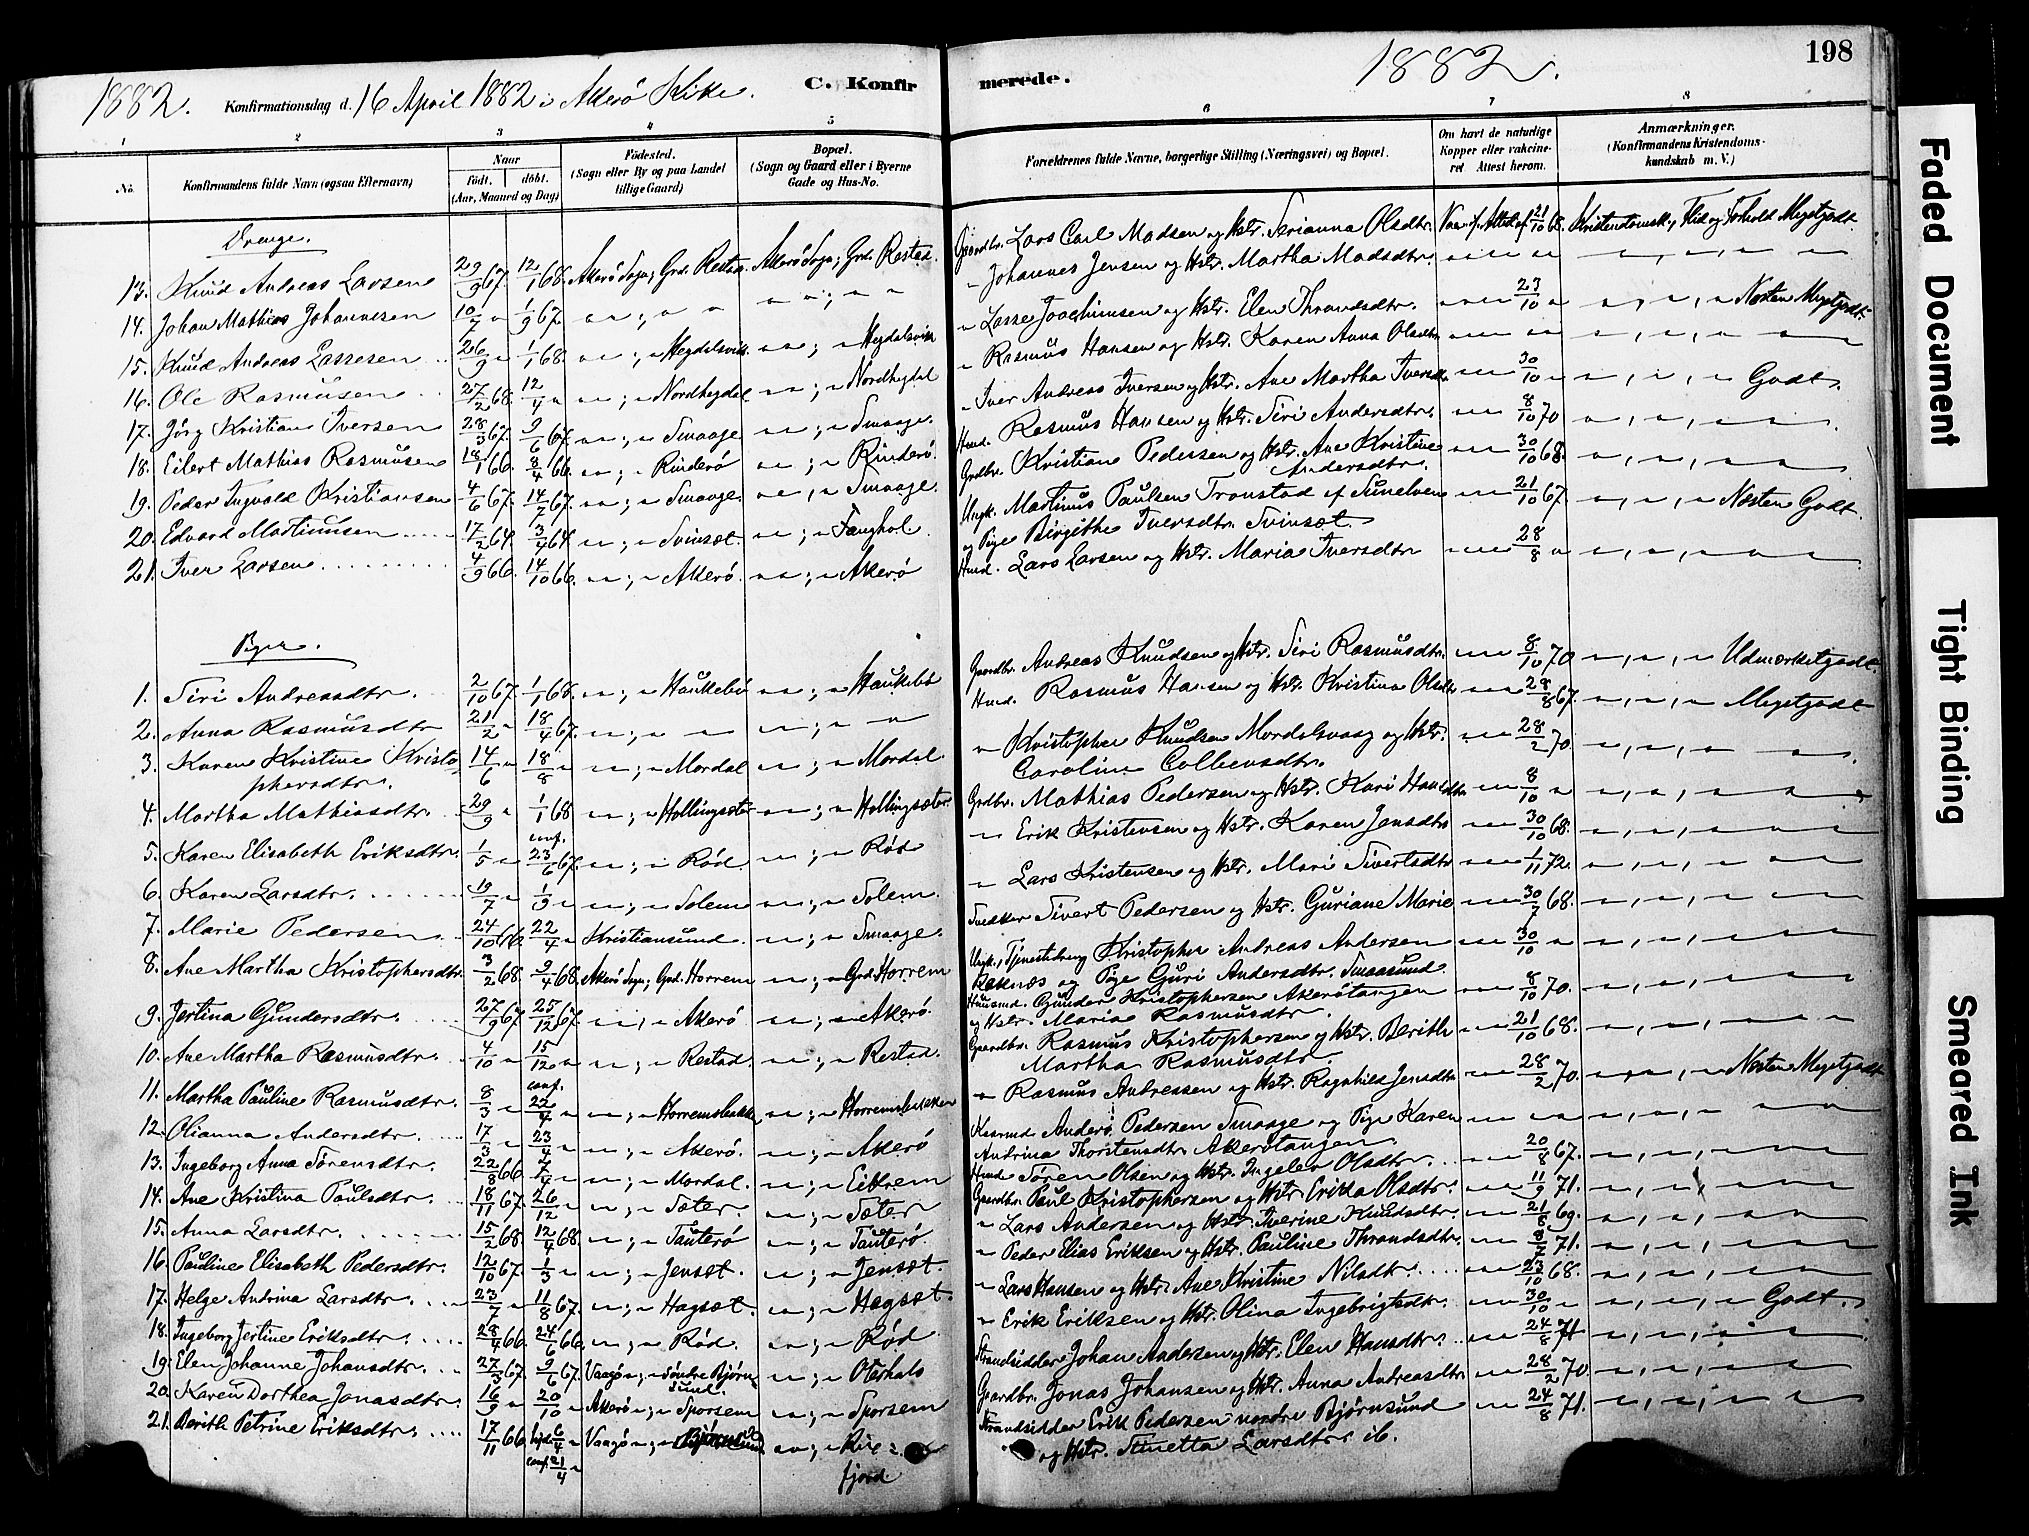 198
1882. Konfirmationsdag d. 16 April 1882 i Akerö Kirke. C. Konfirmerede. 1882.
1 2 3 4 5 6 7 8
No. Konfirmandens fulde Navn (ogsaa Efternavn) Naar født. døbt. (Aar, Maaned og Dag) Fødested. (Sogn eller By og paa Landet tillige Gaard) Bopæl. (Sogn og Gaard eller i Byerne Gade og Hus-No. Forældrenes fulde Navne, borgerlige Stilling (Næringsvei) og Bopæl. Om havt de naturlige Kopper eller vakcineret Attest herom. Anmærkninger. (Konfirmandens Kristendomskundskab m. V.)
Drenge.
13. Knud Andreas Larsen 29/9 67. 12/1 68. Akerö Sogn; Grd. Restad. Akerö Sogn; Grd. Restad. Gaardbr. Lars Carl Madsen og Hstr. Serianna Olsdtr. Vac. f. Attest af 21/10 68. Kristendomsk., Flid og Forhold Megetgodt.
14. Johan Mathias Johannesen 10/7 " 1/9 67. " "; " " " "; " " " Johannes Jensen og Hstr. Martha Madsdtr. " " " " " , " , " "
15. Knud Andreas Lassesen 26/9 " 1/1 68. " "; " Hegdalsvik. " "; " Hegdalsvik " Lasse Joachimsen og Hstr. Elen Thrandsdtr. " " 23/10 " " , " , " Næsten Megetgodt.
16. Ole Rasmusen 27/2 68. 12/4 " " "; " Nordhegdal " "; " Nordhegdal " Rasmus Hansen og Hstr. Karen Anna Olsdtr. " " " " " , " , " "
17. Jörg Kristian Iversen 28/3 67. 9/6 67. " "; " Smaage " "; " Smaage. " Iver Andreas Iversen og Hstr. Ane Martha Iversdtr. " " 30/10 " " , " , " Godt.
18. Eilert Mathias Rasmusen 18/1 66. 8/4 66. " "; " Rinderö " "; " Rinderö. Hmd. Rasmus Hansen og Hstr. Siri Andersdtr. " " 8/10 70 " , " , " "
19. Peder Ingvald Kristiansen 4/6 67. 14/7 67. " "; " Smaage. " " , " Smaage. Grdbr. Kristian Pedersen og Hstr. Ane Kristine Andersdtr. " " 30/10 68. " , " , " "
20. Edvard Martinusen 17/2 64. 3/4 64. " "; " Svinsæt. " "; " Fanghol. Ungk. Martinus Paulsen Tronstad af Sunelven og Pige Birgithe Iversdtr. Svinsæt. " " 21/10 67. " , " , " Næsten Godt.
21. Iver Larsen 4/9 66. 14/10 66. " "; " Akerö. " "; " Akerö Hmd. Lars Larsen og Hstr. Maria Iversdtr " " 28/8 " " , " , " "
Piger.
1. Siri Andreasdtr. 2/10 67. 1/1 68. " "; " Haukebö " "; " Haukebö Gaardbr. Andreas Knudsen og Hstr. Siri Rasmusdtr. " " 8/10 70 " , " , " Udmærketgodt.
2. Anna Rasmusdtr 21/2 " 18/4 67. " "; " " " "; " " Hmd. Rasmus Hansen og Hstr Kristina Olsdtr " " 28/8 67. " , " , " Megetgodt
3. Karen Kristine Kristophersdtr. 14/6 " 18/8 " " "; " Mordal " "; " Mordal. " Kristopher Knudsen Mordalsvaag og Hstr. Caroline Colbensdtr. " " 28/2 70. " , " , " "
4. Martha Mathiasdtr. 29/9 " 1/1 68 " "; " Hollingsæter " "; " Hollingsæter. Grdbr. Mathias Pedersen og Hstr. Kari Hansdtr. " " 8/10 " " , " , " "
5. Karen Elisabeth Eriksdtr. 1/5 " conf. 23/6 67. " "; " Röd. " "; " Röd " Erik Kristensen og Hstr. Karen Jensdtr " " 30/10 68. " , " , " "
6. Karen Larsdtr. 19/7 " 1/9 " " "; " Solem " "; " Solem. " Lars Kristensen og Hstr. Mari Sivertsdtr " " 1/11 72. " , " , " "
7. Marie Pedersen 24/10 66. 22/4 " Kristiansund. " "; " Smaage. Snedker Sivert Pedersen og Hstr. Guriane Marie " " 30/7 68. " , " , " "
8. Ane Martha Kristophersdtr. 3/2 68. 9/4 68. Akerö Sogn; Grd. Horrem " "; " Grd. Horrem Ungk., Tjenestedreng Kristopher Andreas Andersen Raknæs og Pige Guri Andersdtr. Smaasund. " " 30/10 " " , " , " "
9. Jertina Gundersdtr. 27/9 67. 25/12 67. " " , " Akerö " "; " Akerö. Husmd. Gunder Kristophersen Akerötangen og Hstr. Maria Rasmusdtr. " " 8/10 70. " , " , " "
10. Ane Martha Rasmusdtr. 4/10 " 15/12 " " "; " Restad. " "; " Restad. Gaardbr. Rasmus Kristophersen og Hstr. Berith Martha Rasmusdtr. " " 21/10 68. " , " , " "
11. Martha Pauline Rasmusdtr. 8/3 " conf. 22/4 " " "; " Horremsbakk " "; " Horremsbakken " Rasmus Andreassen og Hstr. Ragnhild Jensdtr " " 28/2 70. " , " , " Næsten Megetgodt
12. Olianna Andersdtr. 17/3 " 23/4 " " "; " Akerö. " "; " Akerö Anders Pedersen Smaage og Pige Karen Andrina Thorstensdtr. Akerötangen. " " " " " , " , " "
13. Ingeborg Anna Sörensdtr. 22/8 66. 7/4 " " "; " Mordal. " "; " Eikrem Hmd. Sören Olsen og Hstr. Ingelev Olsdtr. " " 20/8 67. " , " , " "
14. Ane Kristina Paulsdtr. 18/11 67. 26/12 " " "; " Sæter. " "; " Sæter Gaardbr. Paul Kristophersen og Hstr. Erikka Olsdtr. " " 11/9 71. " , " , " "
15. Anna Larsdtr. 15/2 68. 12/4 68. " "; " Tauterö " "; " Tauterö. " Lars Andersen og Hstr. Iverine Knudsdtr. " " 21/8 69. " , " , " "
16 Pauline Elisabeth Pedersdtr. 12/10 67. 1/3 " " "; " Jensæt. " "; " Jensæt. " Peder Elias Eriksen og Hstr. Pauline Thrandsdtr. " " 71. " , " , " "
17. Helge Andrina Larsdtr. 23/7 " 11/8 67. " "; " Hagsæt. " "; " Hagsæt. " Lars Hansen og Hstr. Ane Kristine Nilsdtr. " " 23/10 68. " , " , " "
18. Ingeborg Jertine Eriksdtr. 28/4 66. 24/6 66. " "; " Röd. " "; " Röd " Erik Eriksen og Hstr. Olina Ingebrigtsdtr. " " 30/10 " " , " , " Godt.
19. Elen Johanne Johansdtr. 27/3 67. 9/6 67. Vaagö "; " Söndre Björnsund. " "; " Oterhals Strandsidder Johan Andersen og Hstr. Elen Hansdtr. " " 24/8 71 " , " , " "
20. Karen Dorthea Jonasdtr. 16/9 " 20/10 " Akerö "; " Sporsem " "; " Sporsem Gaardbr. Jonas Johansen og Hstr. Anna Andreasdtr " " 28/2 70. " , " , " "
21. Berith Petrine Eriksdtr. 17/11 66. 6/4 " conf. 21/4 " Vaagö "; " Björnsund " "; fjord. Strandsidder Erik Pedersen nordre Björnsund og Hstr. Larsdtr. ib. " " 24/8 71. " , " , " "
Faded Document
Tight Binding
Smeared Ink